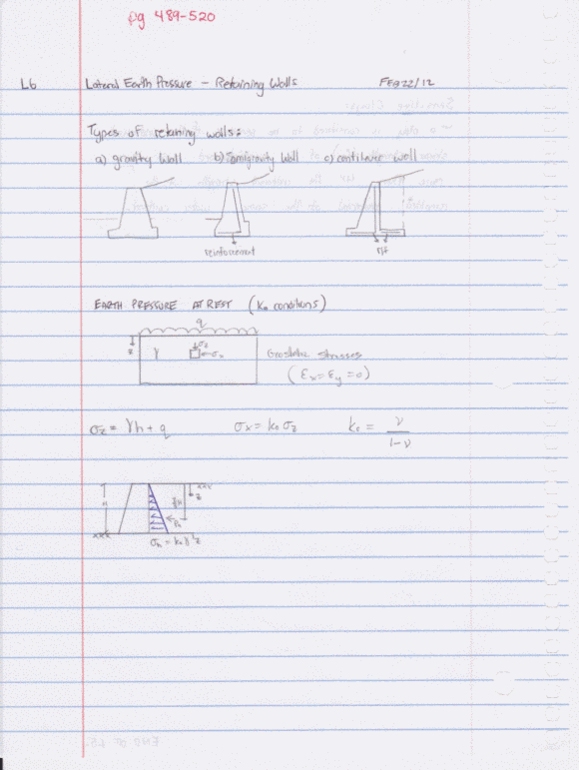 pg 489-520
L6 Lateral Earth Pressure - Retaining Walls FEB 22/12
Types of retaining walls:
a) gravity wall b) semigravity wall c) cantilever wall
reinforcement
EARTH PRESSURE AT REST (K₀ conditions)
q
z γ σz σx Geostatic stresses
(εx = εy = 0)
σz = γh + q σx = k₀ σz k₀ = ν / 1-ν
H z
P₀
END OF L5.